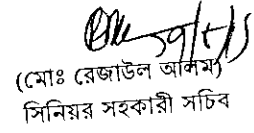 (মোঃ রেজাউল আলম)
সিনিয়র সহকারী সচিব